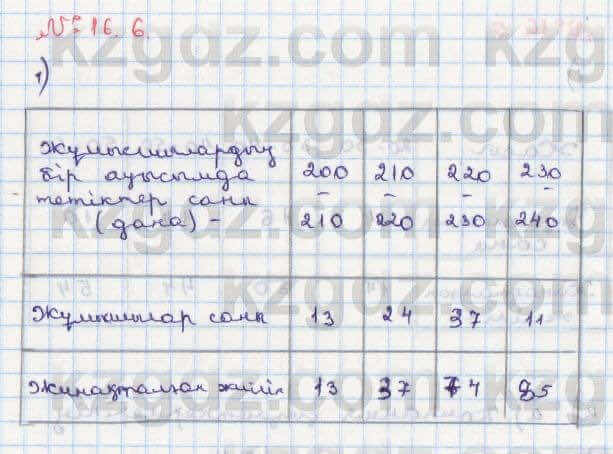 № 16. 6.
1)
Жұмысшылардың
бір ауысымда 200 210 220 230
тетіктер саны - - - -
(дана) - 210 220 230 240
Жұмышылар саны 13 24 37 11
Жинақталған жиілік 13 37 74 85
kzgdz.com